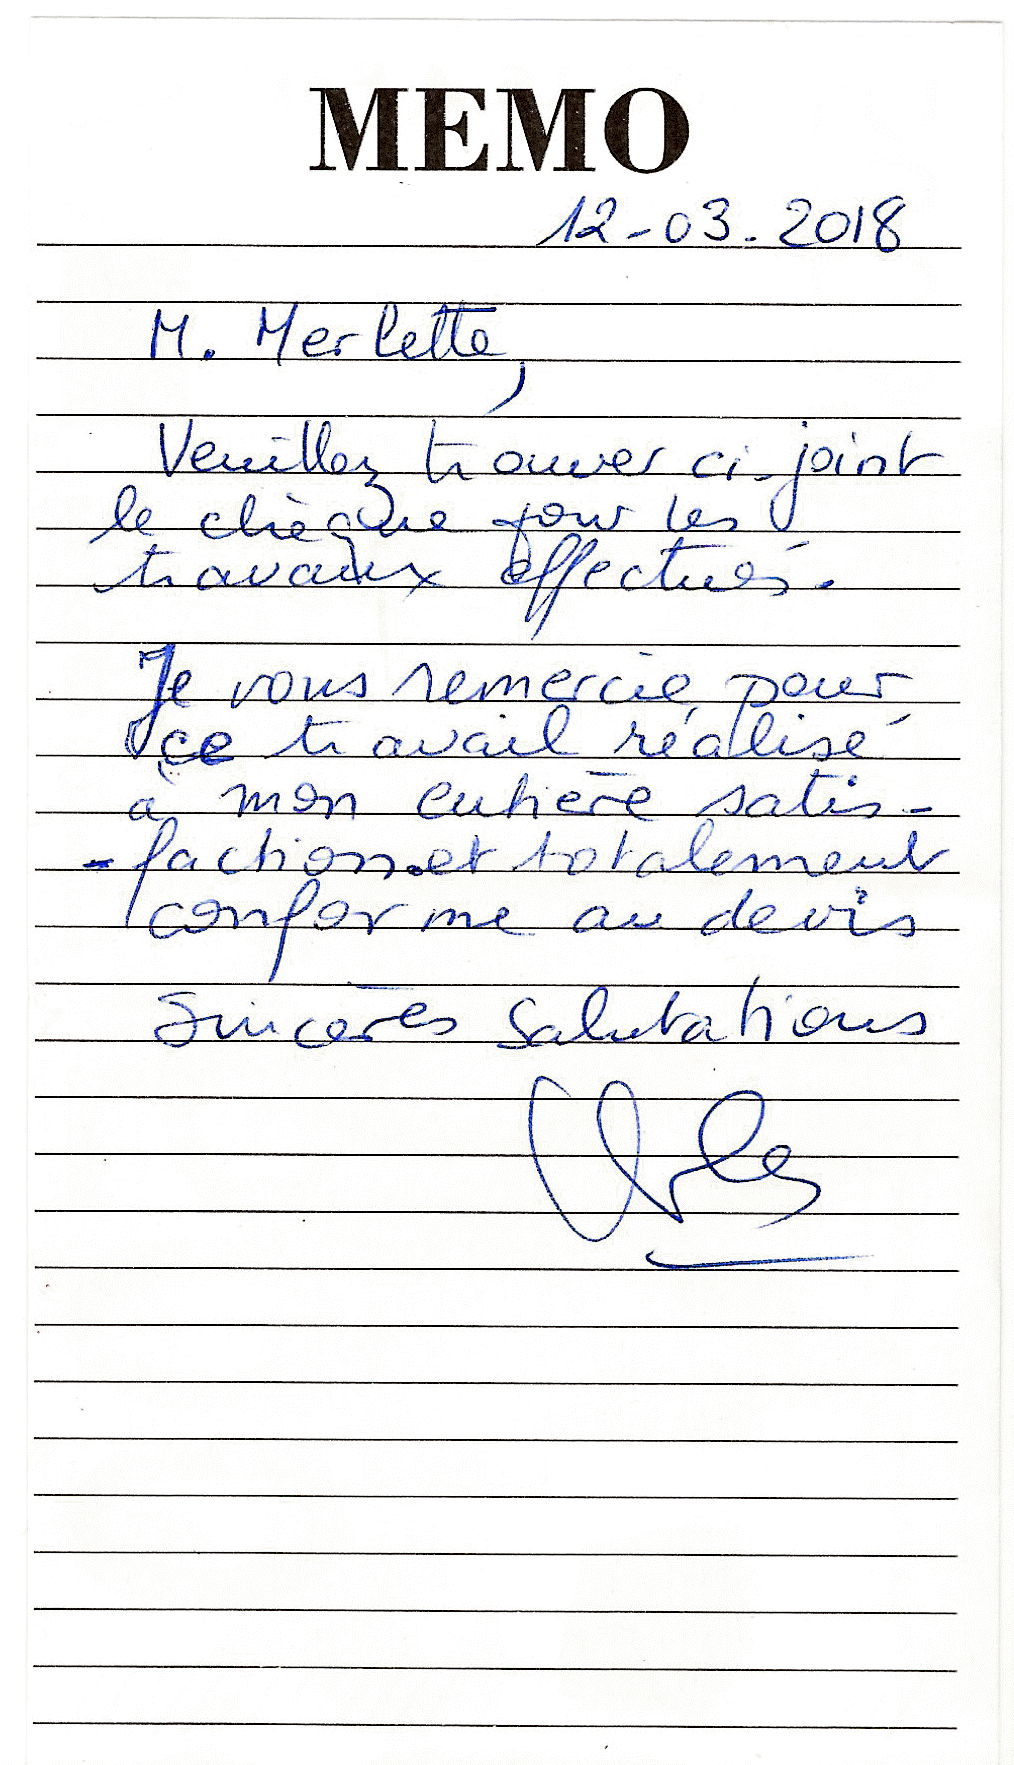 MEMO
12-03.2018
M. Merlette,
Veuillez trouver ci-joint
le chèque pour les
travaux effectués.
Je vous remercie pour
ce travail réalisé
à mon entière satis-
-faction et totalement
conforme au devis
Sincères salutations